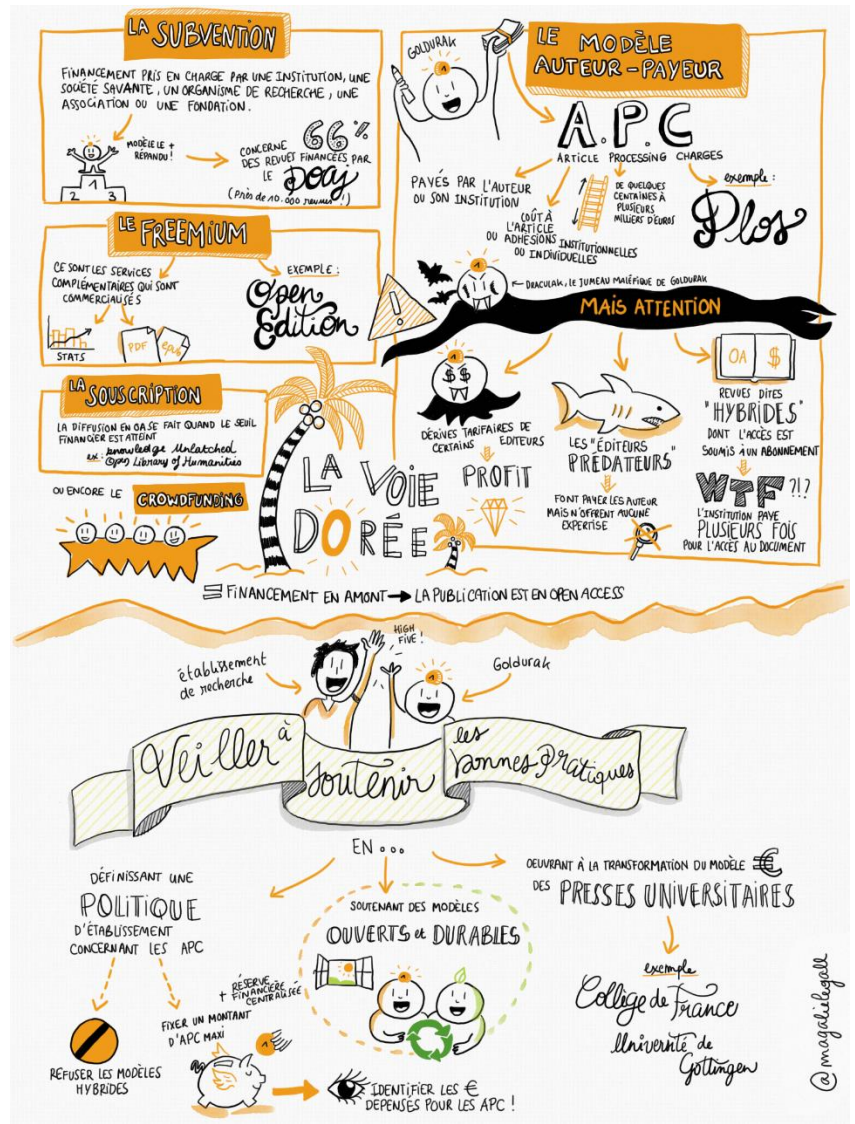 LA SUBVENTION
FINANCEMENT PRIS EN CHARGE PAR UNE INSTITUTION, UNE
SOCIÉTÉ SAVANTE, UN ORGANISME DE RECHERCHE, UNE
ASSOCIATION OU UNE FONDATION.
MODÈLE LE +
RÉPANDU !
2 1 3
CONCERNE 66%
DES REVUES FINANCÉES PAR
LE DOAJ
(Près de 10.000 revues !)
LE FREEMIUM
CE SONT LES SERVICES
COMPLÉMENTAIRES QUI SONT
COMMERCIALISÉS
STATS
PDF
epub
EXEMPLE :
Open
Edition
LA SOUSCRIPTION
LA DIFFUSION EN OA SE FAIT QUAND LE SEUIL
FINANCIER EST ATTEINT
ex: knowledge Unlatched
Open Library of Humanities
OU ENCORE LE CROWDFUNDING
GOLDURAK
1
LE MODÈLE
AUTEUR-PAYEUR
A.P.C
ARTICLE PROCESSING CHARGES
PAYÉS PAR L'AUTEUR
OU SON INSTITUTION
COÛT À
L'ARTICLE
OU ADHÉSIONS INSTITUTIONNELLES
OU INDIVIDUELLES
DE QUELQUES
CENTAINES À
PLUSIEURS
MILLIERS D'EUROS
exemple :
Plos
!
1
DRACULAK, LE JUMEAU MALÉFIQUE DE GOLDURAK
MAIS ATTENTION
1
$ $
DÉRIVES TARIFAIRES DE
CERTAINS EDITEURS
PROFIT
LES "ÉDITEURS
PRÉDATEURS"
FONT PAYER LES AUTEUR
MAIS N'OFFRENT AUCUNE
EXPERTISE
OA $
REVUES DITES
"HYBRIDES"
DONT L'ACCÈS EST
SOUMIS À UN ABONNEMENT
WTF ?!?
L'INSTITUTION PAYE
PLUSIEURS FOIS
POUR L'ACCÈS AU DOCUMENT
LA VOIE
DORÉE
= FINANCEMENT EN AMONT → LA PUBLICATION EST EN OPEN ACCESS
établissement
de recherche
HIGH
FIVE !
1
Goldurak
Veiller à soutenir les bonnes pratiques
EN ...
DÉFINISSANT UNE
POLITIQUE
D'ÉTABLISSEMENT
CONCERNANT LES APC
REFUSER LES MODÈLES
HYBRIDES
FIXER UN MONTANT
D'APC MAXI
+ RÉSERVE
FINANCIÈRE
CENTRALISÉE
1
IDENTIFIER LES €
DÉPENSÉS POUR LES APC !
SOUTENANT DES MODÈLES
OUVERTS et DURABLES
OEUVRANT À LA TRANSFORMATION DU MODÈLE €
DES PRESSES UNIVERSITAIRES
exemple
Collège de France
Université de
Gottingen
@magalielegall